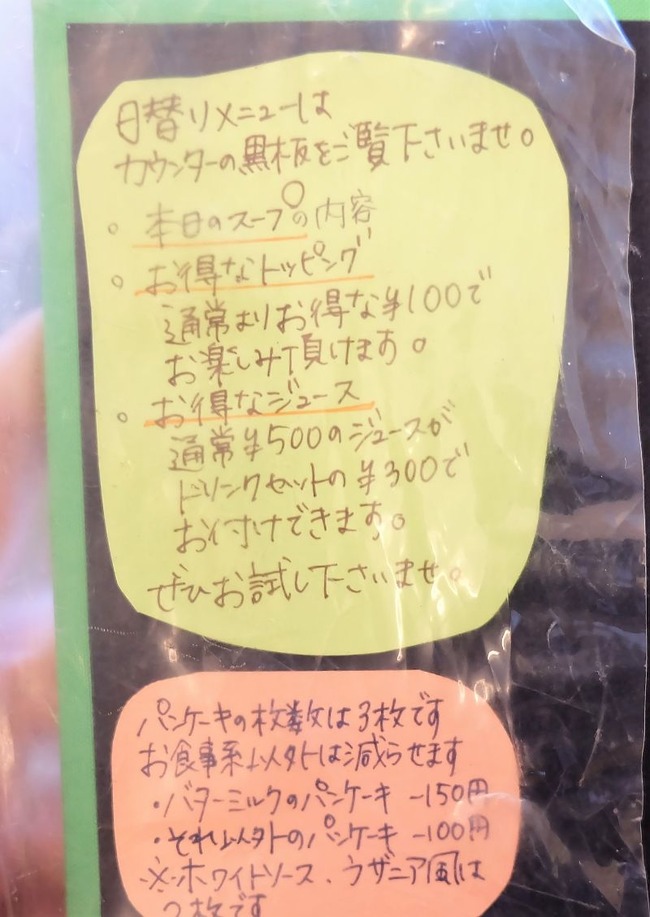 日替りメニューは
カウンターの黒板をご覧下さいませ。
。本日のスープの内容
。お得なトッピング
通常よりお得な¥100で
お楽しみ頂けます。
。お得なジュース
通常¥500のジュースが
ドリンクセットの¥300で
お付けできます。
ぜひお試し下さいませ。
パンケーキの枚数は3枚です
お食事系以外は減らせます
・バターミルクのパンケーキ -150円
・それ以外のパンケーキ -100円
※ホワイトソース、ラザニア風は
2枚です